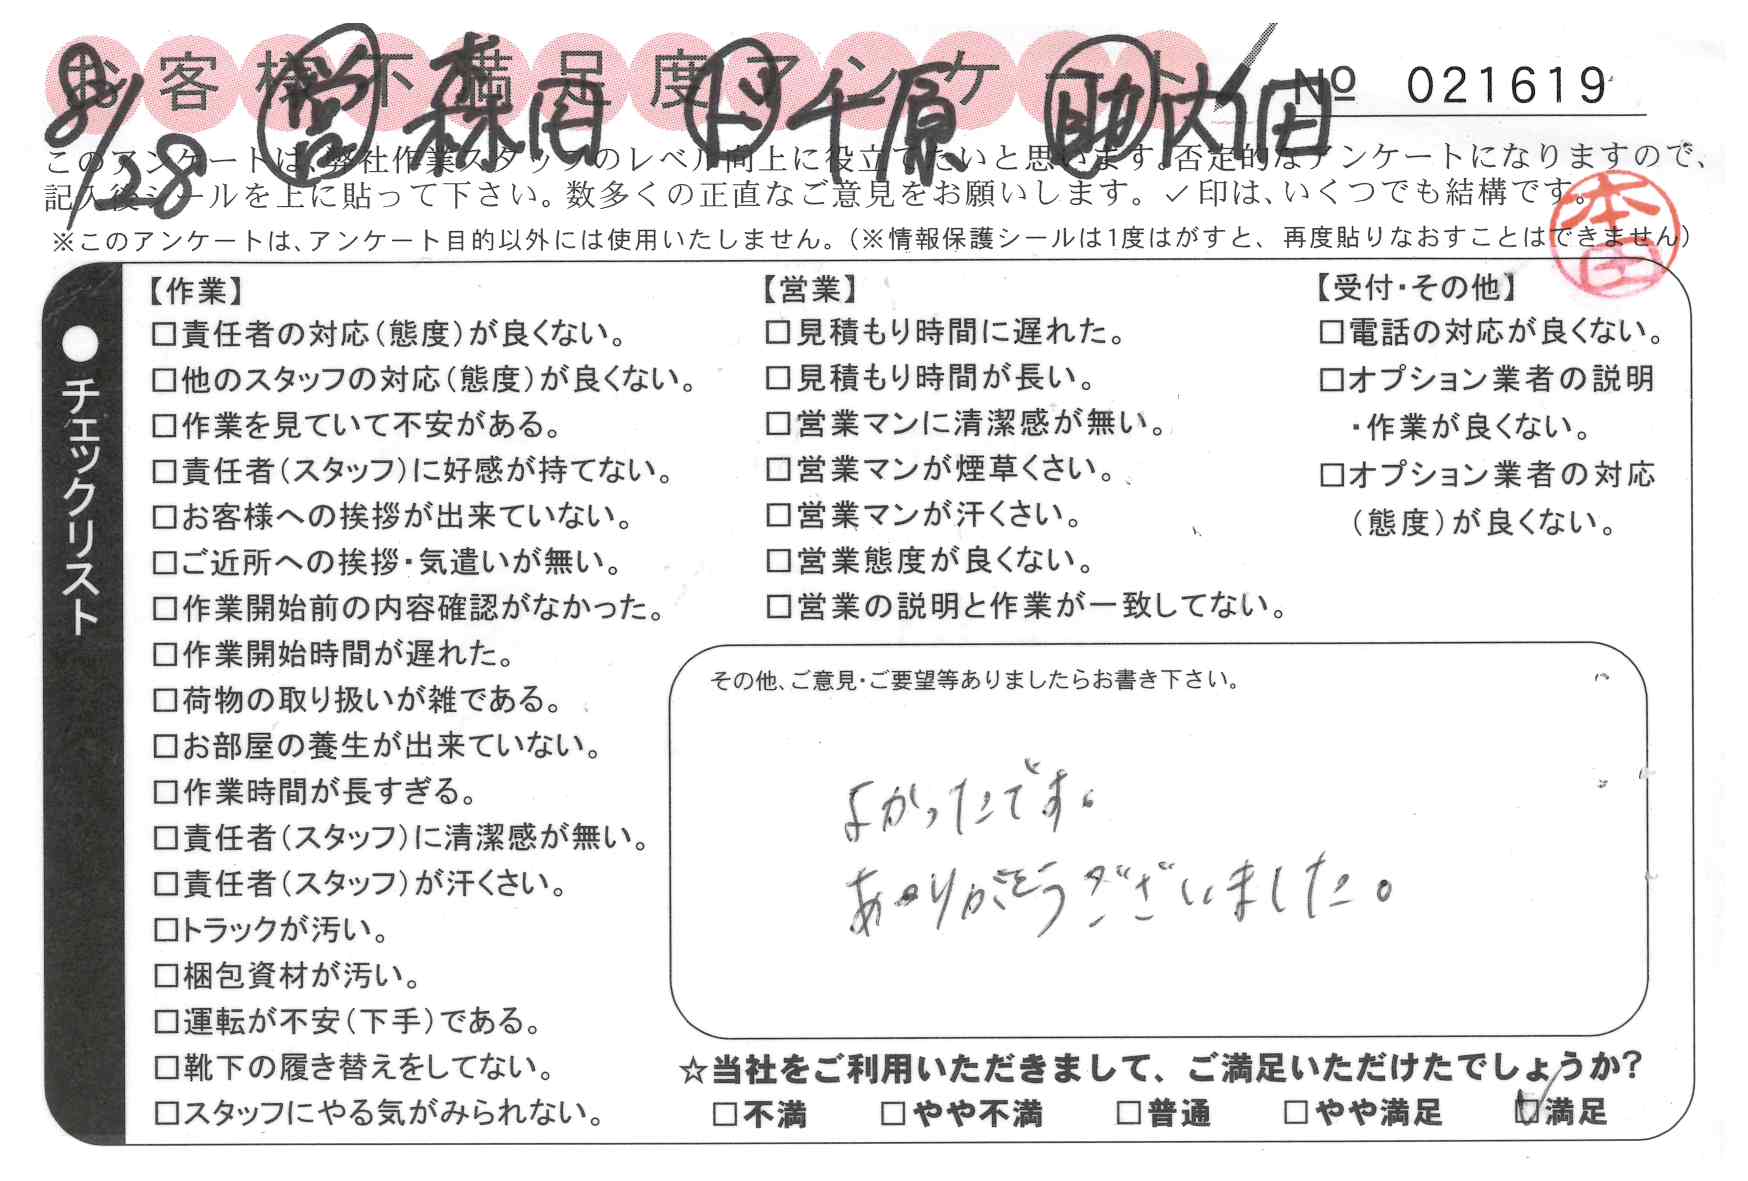 お客様不満足度アンケート
№ 021619
8/28 営 森田 ド 千原 助 内田
このアンケートは、弊社作業スタッフのレベル向上に役立てたいと思います。否定的なアンケートになりますので、
記入後シールを上に貼って下さい。数多くの正直なご意見をお願いします。✓印は、いくつでも結構です。
※このアンケートは、アンケート目的以外には使用いたしません。(※情報保護シールは1度はがすと、再度貼りなおすことはできません)
●チェックリスト
【作業】
□責任者の対応(態度)が良くない。
□他のスタッフの対応(態度)が良くない。
□作業を見ていて不安がある。
□責任者(スタッフ)に好感が持てない。
□お客様への挨拶が出来ていない。
□ご近所への挨拶・気遣いが無い。
□作業開始前の内容確認がなかった。
□作業開始時間が遅れた。
□荷物の取り扱いが雑である。
□お部屋の養生が出来ていない。
□作業時間が長すぎる。
□責任者(スタッフ)に清潔感が無い。
□責任者(スタッフ)が汗くさい。
□トラックが汚い。
□梱包資材が汚い。
□運転が不安(下手)である。
□靴下の履き替えをしてない。
□スタッフにやる気がみられない。
【営業】
□見積もり時間に遅れた。
□見積もり時間が長い。
□営業マンに清潔感が無い。
□営業マンが煙草くさい。
□営業マンが汗くさい。
□営業態度が良くない。
□営業の説明と作業が一致してない。
【受付・その他】
□電話の対応が良くない。
□オプション業者の説明
・作業が良くない。
□オプション業者の対応
(態度)が良くない。
その他、ご意見・ご要望等ありましたらお書き下さい。
よかったです。
ありがとうございました。
☆当社をご利用いただきまして、ご満足いただけたでしょうか?
□不満 □やや不満 □普通 □やや満足 ☑満足